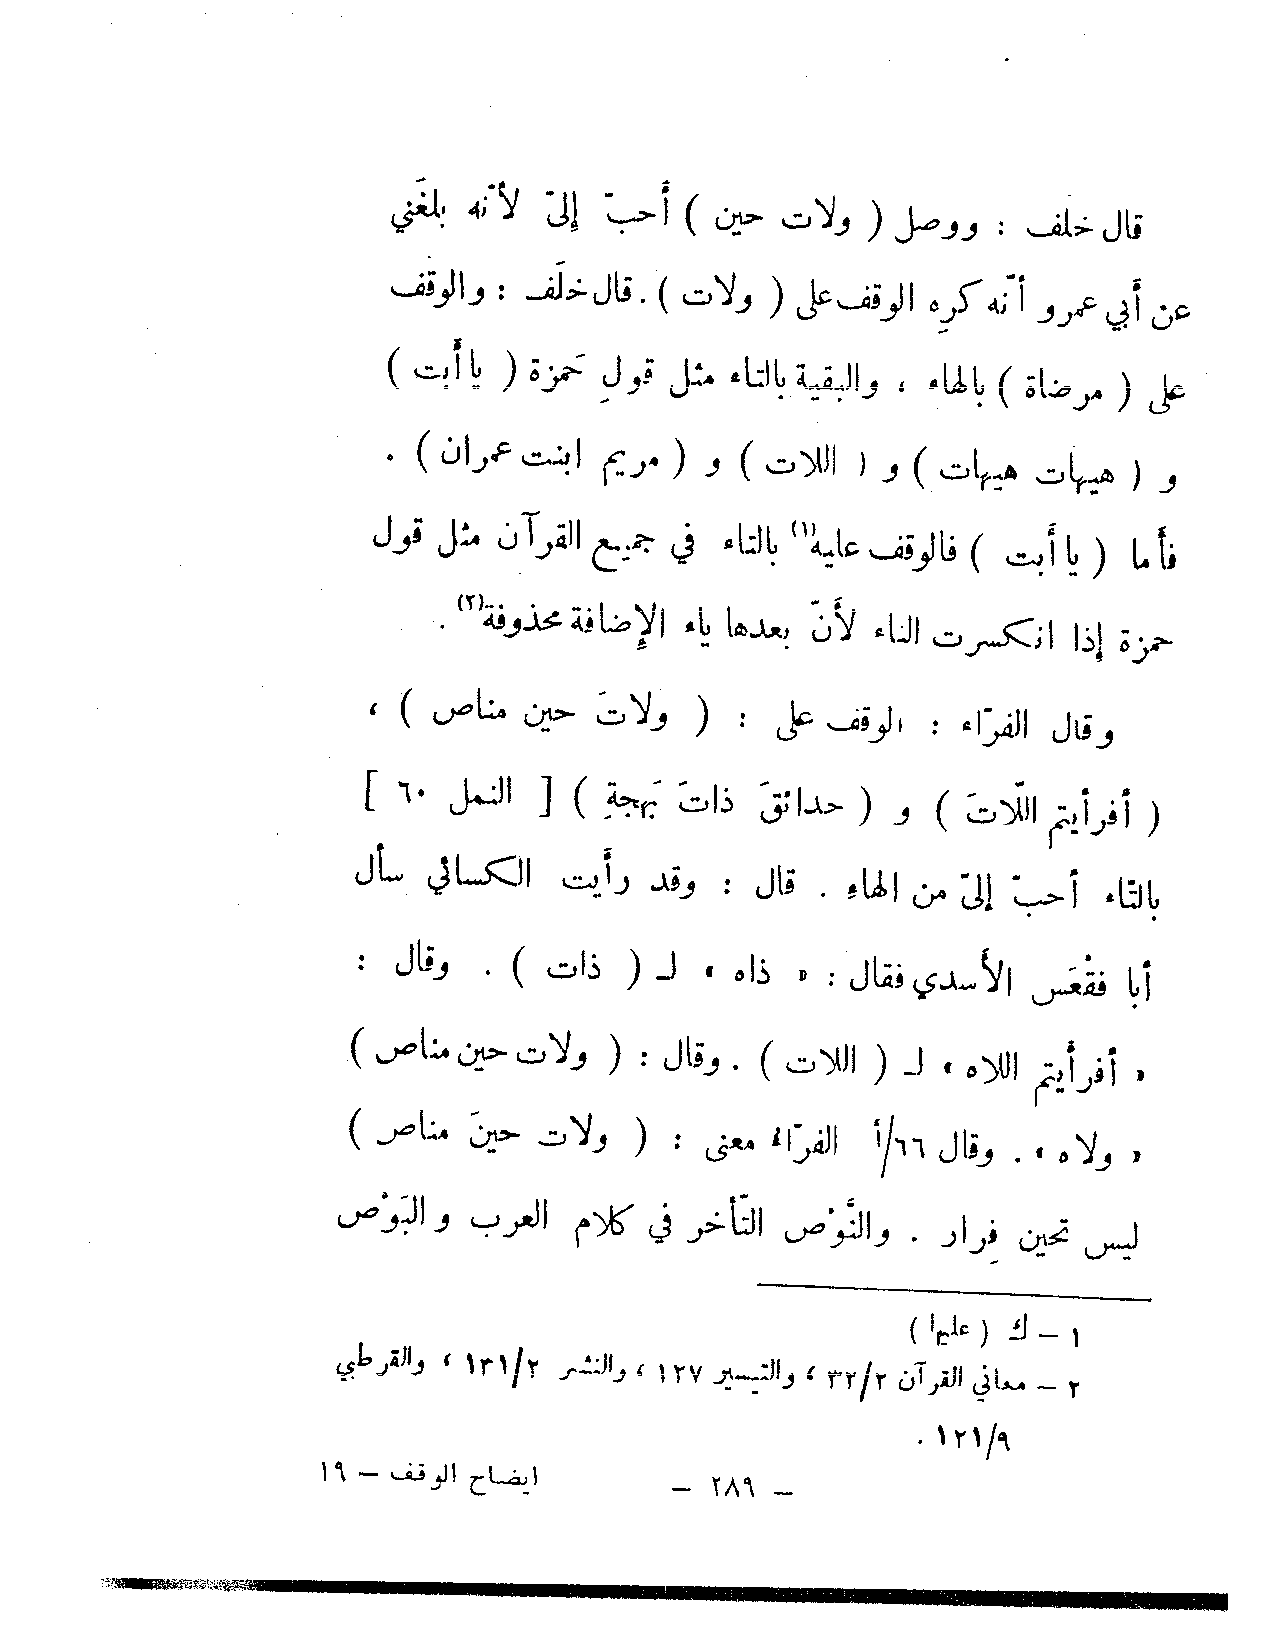 قال خلف : ووصل ( ولات حين ) أحبّ إليّ لأنّه بلغَني
عن أبي عمرو أنّه كرِه الوقف على ( ولات ) . قال خلَف : والوقف
على ( مرضاة ) بالهاء ، والبقية بالتاء مثل قولِ حَمزة ( يا أبت )
و ( هيهات هيهات ) و ( اللات ) و ( مريم ابنت عمران ) .
فأما ( يا أبت ) فالوقف عليه(١) بالتاء في جميع القرآن مثل قول
حمزة إذا انكسرت التاء لأنّ بعدها ياء الإضافة محذوفة(٢) .
وقال الفرّاء : الوقف على : ( ولاتَ حين مناص ) ،
( أفرأيتم اللّاتَ ) و ( حدائقَ ذاتَ بَهجةٍ ) [ النمل ٦٠ ]
بالتّاء أحبّ إليّ من الهاءِ . قال : وقد رأيت الكسائي سأل
أبا فقْعَس الأسدي فقال : « ذاه » لـ ( ذات ) . وقال :
« أفرأيتم اللاه » لـ ( اللات ) . وقال : ( ولات حين مناص )
« ولاه » . وقال ٦٦/أ الفرّاءُ معنى : ( ولات حينَ مناص )
ليس بحين فِرار . والنَّوْص التّأخر في كلام العرب و البَوْص
١ – ك ( عليها )
٢ – معاني القرآن ٣٢/٢ ، والتيسير ١٢٧ ، والنشر ١٣١/٢ ، والقرطبي
١٢١/٩ .
– ٢٨٩ – ايضاح الوقف – ١٩